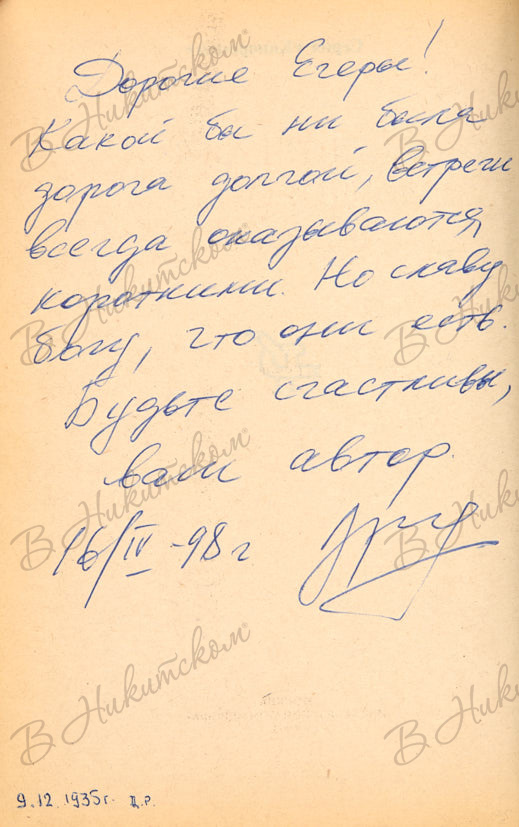 Дорогие Егеры!
Какой бы ни была
дорога долгой, встречи
всегда оказываются
короткими. Но славу
богу, что они есть.
Будьте счастливы,
ваш автор.
16/IV-98г
9.12.1935г. Д.Р.
В Никитском